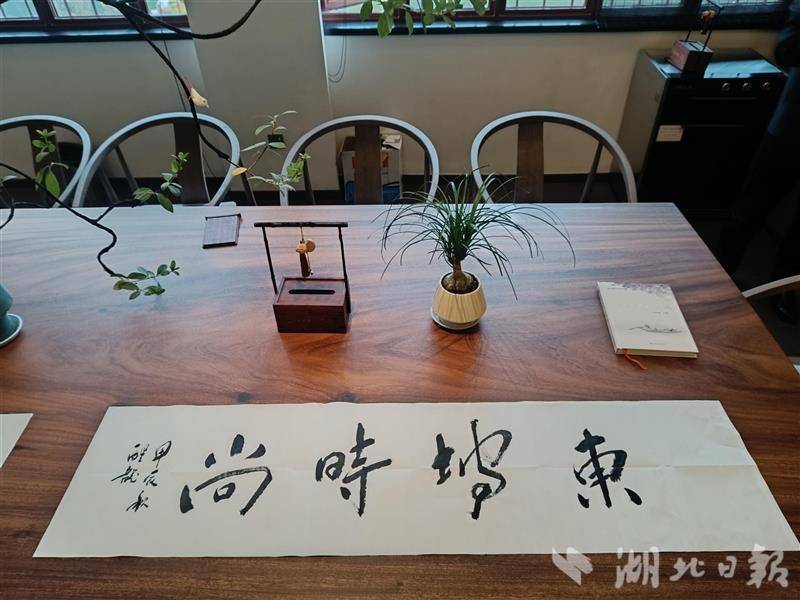 東坡時尚
甲辰秋
醒龍
湖北日報